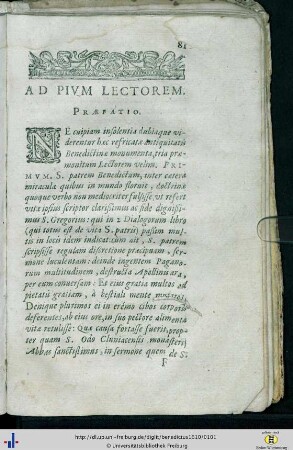 81
AD PIVM LECTOREM.
PRÆFATIO.
NE cuipiam insolentia dubiaque vi-
derentur hæc refricata antiquitatis
Benedictinæ monumenta, tria præ-
monitum Lectorem velim. PRI-
MVM, S. patrem Benedictum, inter cetera
miracula quibus in mundo floruit, doctrinæ
quoque verbo non mediocriter fulsisse vt refert
vitæ ipsius scriptor clarissimus ac fide dignissi-
mus S. Gregorius: qui in 2 Dialogorum libro
(qui totus est de vita S. patris) passim mul-
tis in locis idem indicat: vbi ait, S. patrem
scripsisse regulam discretione præcipuam, ser-
mone luculentam: deinde ingentem Pagano-
rum multitudinem, destructa Apollinis ara,
per eum conuersam: Et eius gratia multos ad
pietatis gratiam, à bestiali mente mutatos.
Denique plurimos ei in eremo cibos corporis
deferentes, ab eius ore, in suo pectore alimenta
vitæ retulisse: Qua causa fortasse fuerit, prop-
ter quam S. Odo Cluniacensis monasterij
Abbas sanctissimus, in sermone quem de S.
F
http://dl.ub.uni-freiburg.de/diglit/benedictus1610/0101
© Universitätsbibliothek Freiburg